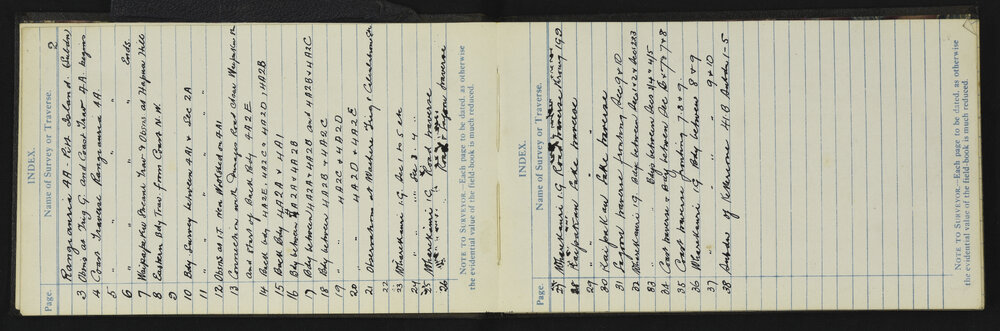 2
INDEX.
Page. Name of Survey or Traverse.
Rangiauria 4A. Pitt Island. Subdn
3 Obsns at Trig G. and Coast Trav. 4A. begins
4 Coast Traverse Rangiauria 4A.
5 " " "
6 " " " Ends.
7 Waipapaku Pacana Trav & Obsns at Hapua Hill
8 Eastern Bdy Trav from Coast N.W.
9
10 Bdy Survey between 4A1 & Sec 2A
11 " " "
12 Obsns at I.T. New Woolshed on 4A1
13 Connection with Road Close
and Trav. of Back Bdy 4A2E
14 Back bdy 4A2E. 4A2C & 4A2D, 4A2B
15 Back Bdy 4A2A & 4A1
16 Bdy between 4A2A & 4A2B
17 Bdy between 4A2A & 4A2B and 4A2B & 4A2C
18 Bdy between 4A2B & 4A2C
19 " " 4A2C & 4A2D
20 " " 4A2D & 4A2E
21 Observations at Trig & Calculations
22
23 Wharekauri 1G. Sec 1 to 5 etc
24 " " Sec 3. 4
25 Wharekauri 1G Road Traverse
26 " " Road & Lagoon traverse
NOTE TO SURVEYOR.—Each page to be dated, as otherwise
the evidential value of the field-book is much reduced.
INDEX.
Page. Name of Survey or Traverse.
27 Wharekauri 1G Road Traverse throug 1G2
28 Kaipakau Lake traverse
29 " "
30 Kaipakau Lake traverse
31 Lagoon traverse fronting Sec 9 & 10
32 Wharekauri 1G Bdys between Sec 1 & 2 & Secs 2 & 3
33 " Bdys between Secs 3 & 4 & 4/5
34 Coast traverse & Bdy between Sec 6 & 7 & 7 & 8
35 Coast traverse fronting 7.8 & 9
36 Wharekauri 1G Bdy between 8 & 9
37 " " " 9 & 10
38 Subdn of Kekerione 41B Subdn 1-5
NOTE TO SURVEYOR.—Each page to be dated, as otherwise
the evidential value of the field-book is much reduced.